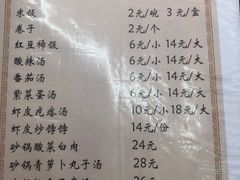 米饭 2元/碗 3元/盒
卷子 2元/个
红豆稀饭 6元/小 14元/大
酸辣汤 6元/小 14元/大
番茄汤 6元/小 14元/大
紫菜蛋汤 6元/小 14元/大
虾皮疙瘩汤 10元/小 18元/大
虾皮炒饽饽 14元/份
砂锅酸菜白肉 24元
砂锅青萝卜丸子汤 28元